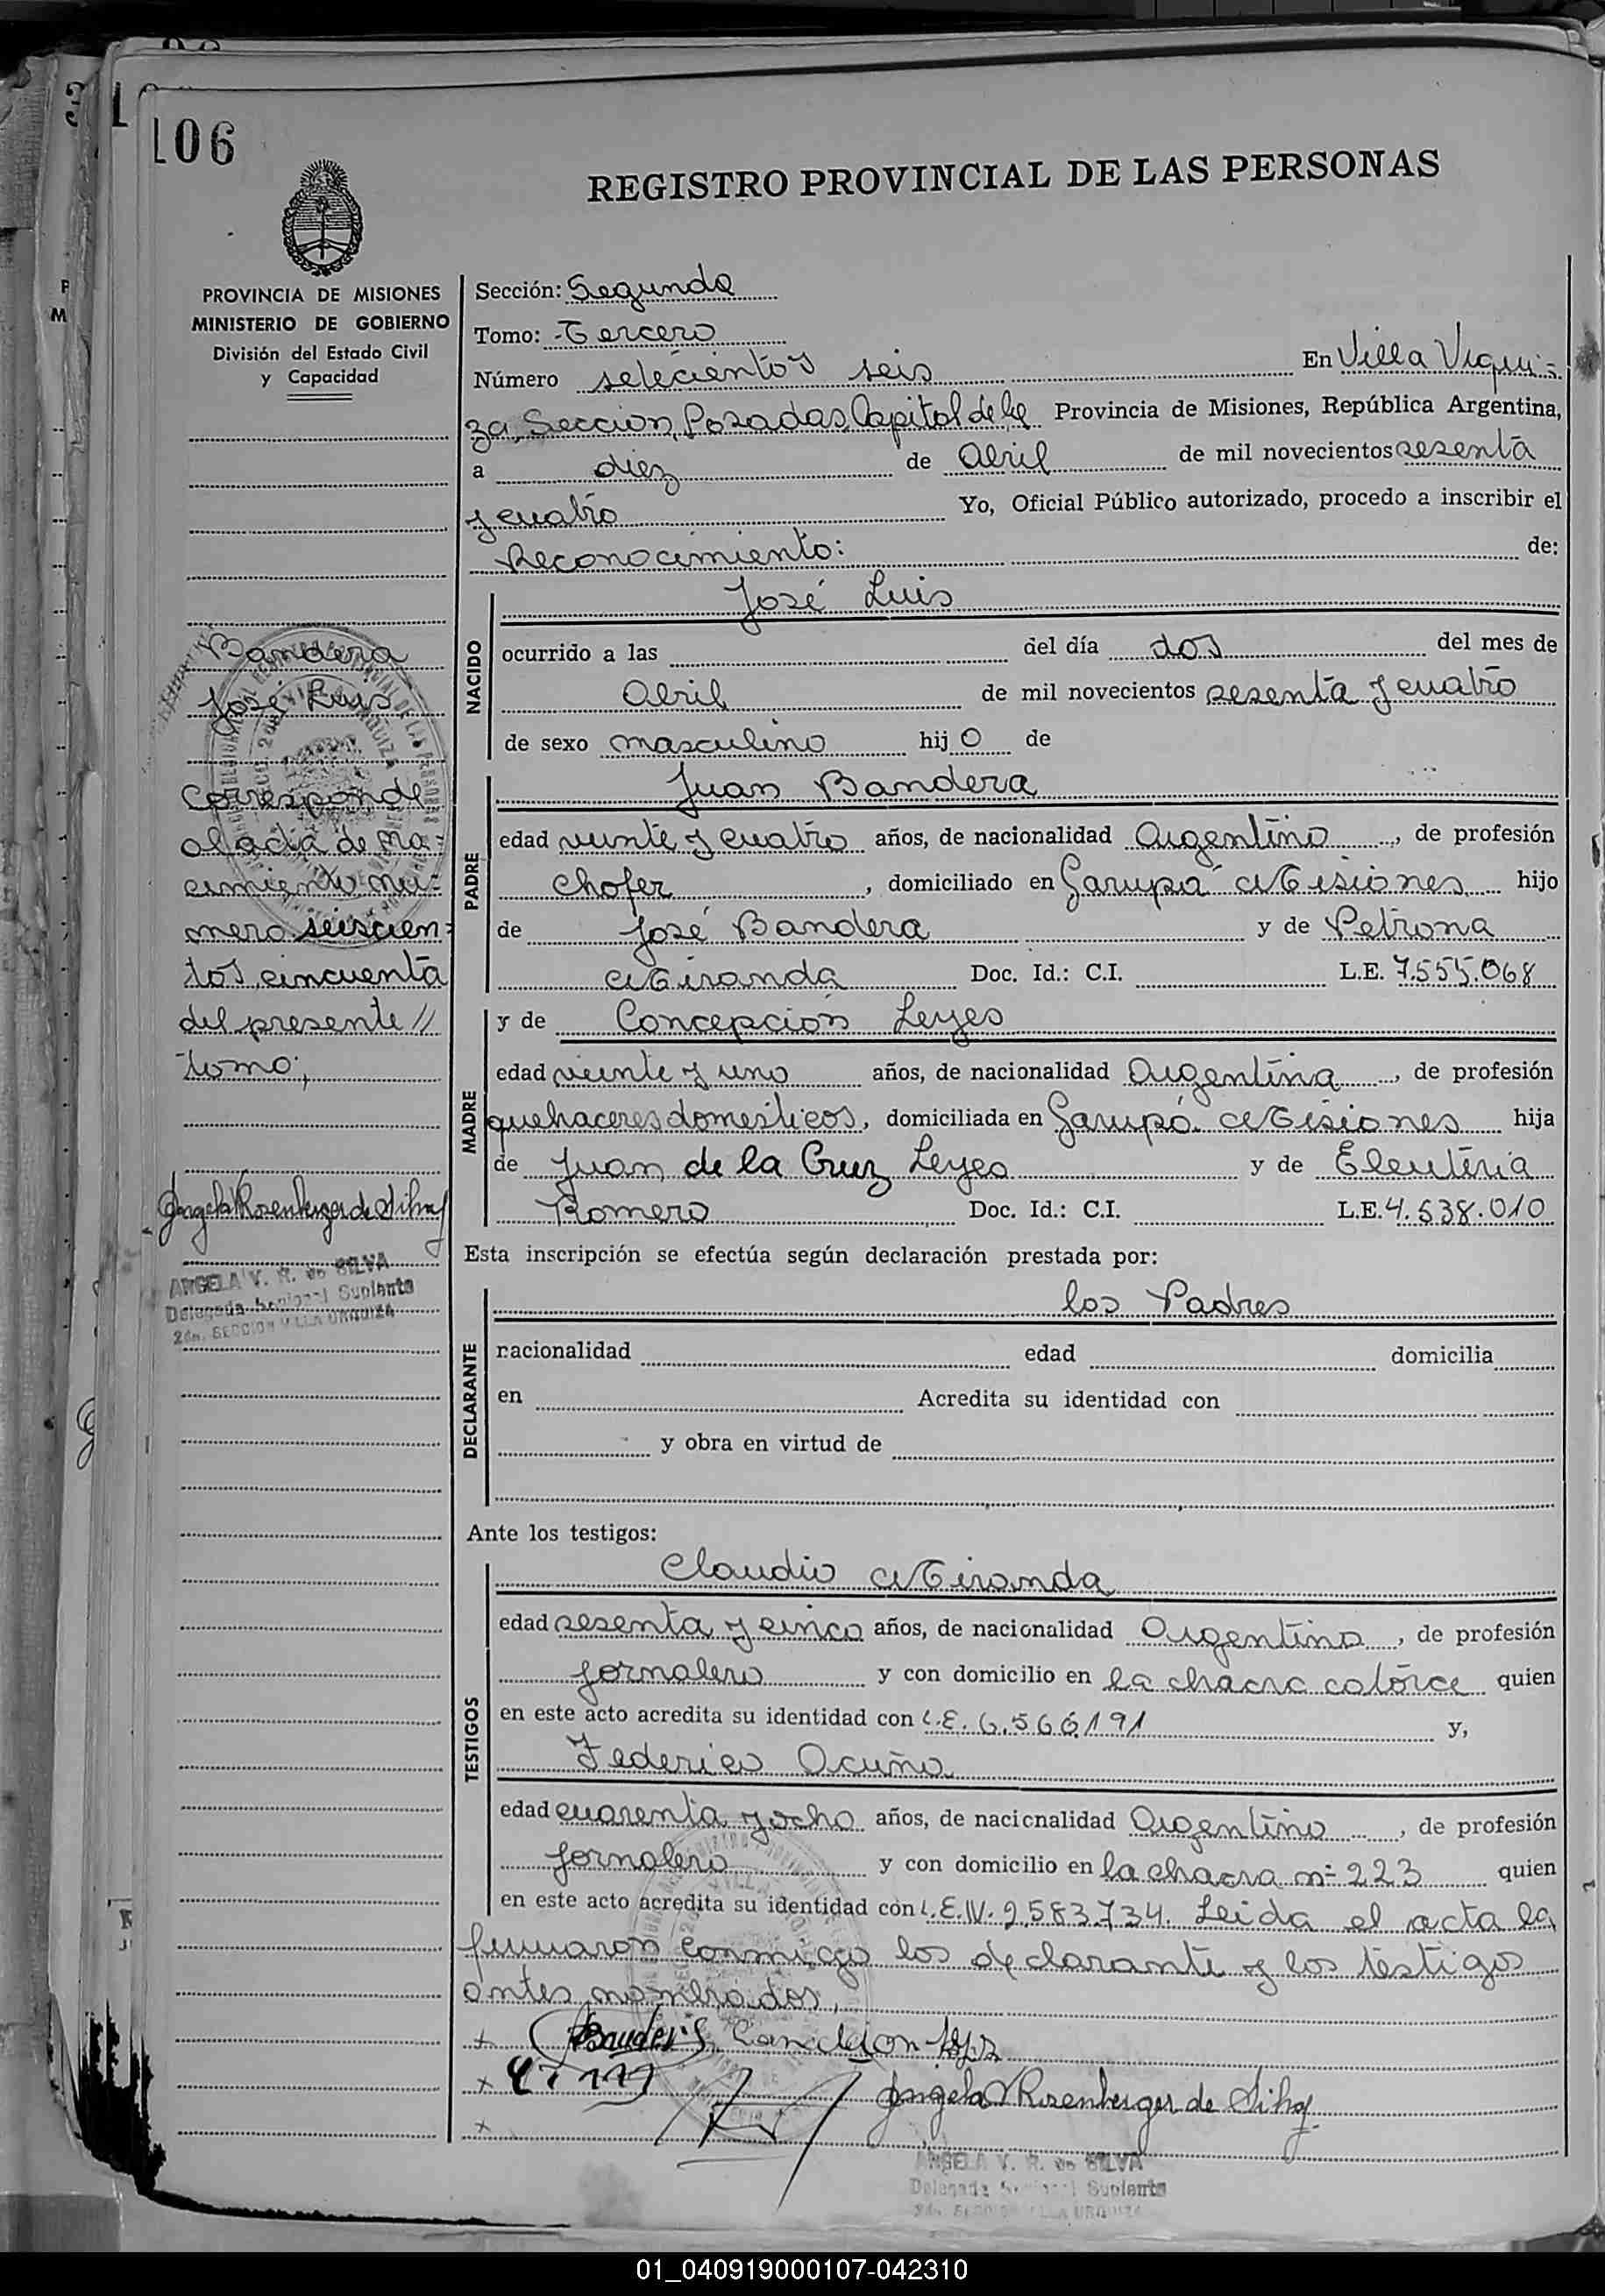 106
REGISTRO PROVINCIAL DE LAS PERSONAS
PROVINCIA DE MISIONES
MINISTERIO DE GOBIERNO
División del Estado Civil
y Capacidad
Sección: Segunda
Tomo: Tercero
Número setecientos seis En Villa Viqui=
za, Seccion, Posadas, Capital de la Provincia de Misiones, República Argentina,
a diez de Abril de mil novecientos sesenta
y cuatro Yo, Oficial Público autorizado, procedo a inscribir el
Reconocimiento: de:
NACIDO
José Luis
ocurrido a las del día dos del mes de
Abril de mil novecientos sesenta y cuatro
de sexo masculino hijo de
PADRE
Juan Bandera
edad veinte y cuatro años, de nacionalidad Argentino, de profesión
Chofer, domiciliado en Garupá Misiones hijo
de José Bandera y de Petrona
Miranda Doc. Id.: C.I. L.E. 7.555.068
MADRE
y de Concepción Leyes
edad veinte y uno años, de nacionalidad Argentina, de profesión
quehaceres domesticos, domiciliada en Garupá Misiones hija
de Juan de la Cruz Leyes y de Eleuteria
Romero Doc. Id.: C.I. L.E. 4.538.010
Esta inscripción se efectúa según declaración prestada por:
DECLARANTE
los Padres
nacionalidad edad domicilia
en Acredita su identidad con
y obra en virtud de
Ante los testigos:
TESTIGOS
Claudio Miranda
edad sesenta y cinco años, de nacionalidad Argentino, de profesión
Jornalero y con domicilio en la chacra catorce quien
en este acto acredita su identidad con L.E. 6.566191 y,
Federico Acuña
edad cuarenta y ocho años, de nacionalidad Argentino, de profesión
Jornalero y con domicilio en la chacra nº 223 quien
en este acto acredita su identidad con L.E.Nº. 2.583.734. Leida el acta la
firmaron conmigo los declarante y los testigos
antes nombrados,
Angela V Rosenberger de Silva
ANGELA V. R. de SILVA
Delegada Seccional Suplente
2da. SECCION VILLA URQUIZA
Bandera
José Luis
Corresponde
al acta de na=
cimiento nu=
mero seiscien=
tos cincuenta
del presente //
tomo;
Angela V Rosenberger de Silva
ANGELA V. R. de SILVA
Delegada Seccional Suplente
2da. SECCION VILLA URQUIZA
01_040919000107-042310